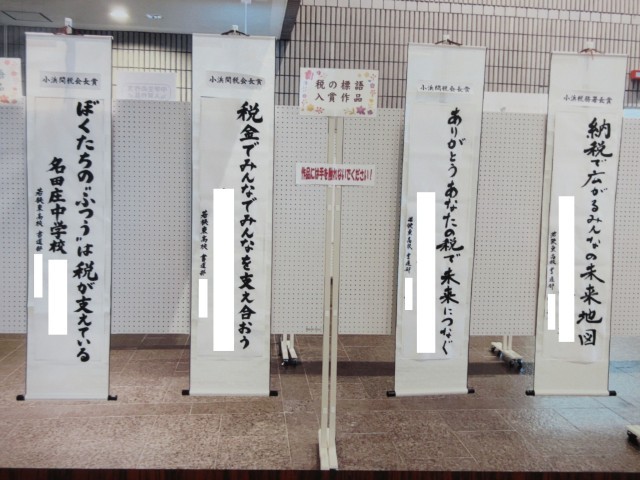 小浜間税会長賞
ぼくたちの〝ふつう〟は税が支えている
名田庄中学校
若狭東高校 書道部
小浜間税会長賞
税金でみんなでみんなを支え合おう
若狭東高校 書道部
税の標語
入賞作品
作品には手を触れないでください！
小浜間税会長賞
ありがとうあなたの税で未来につなぐ
若狭東高校 書道部
小浜税務署長賞
納税で広がるみんなの未来地図
若狭東高校 書道部